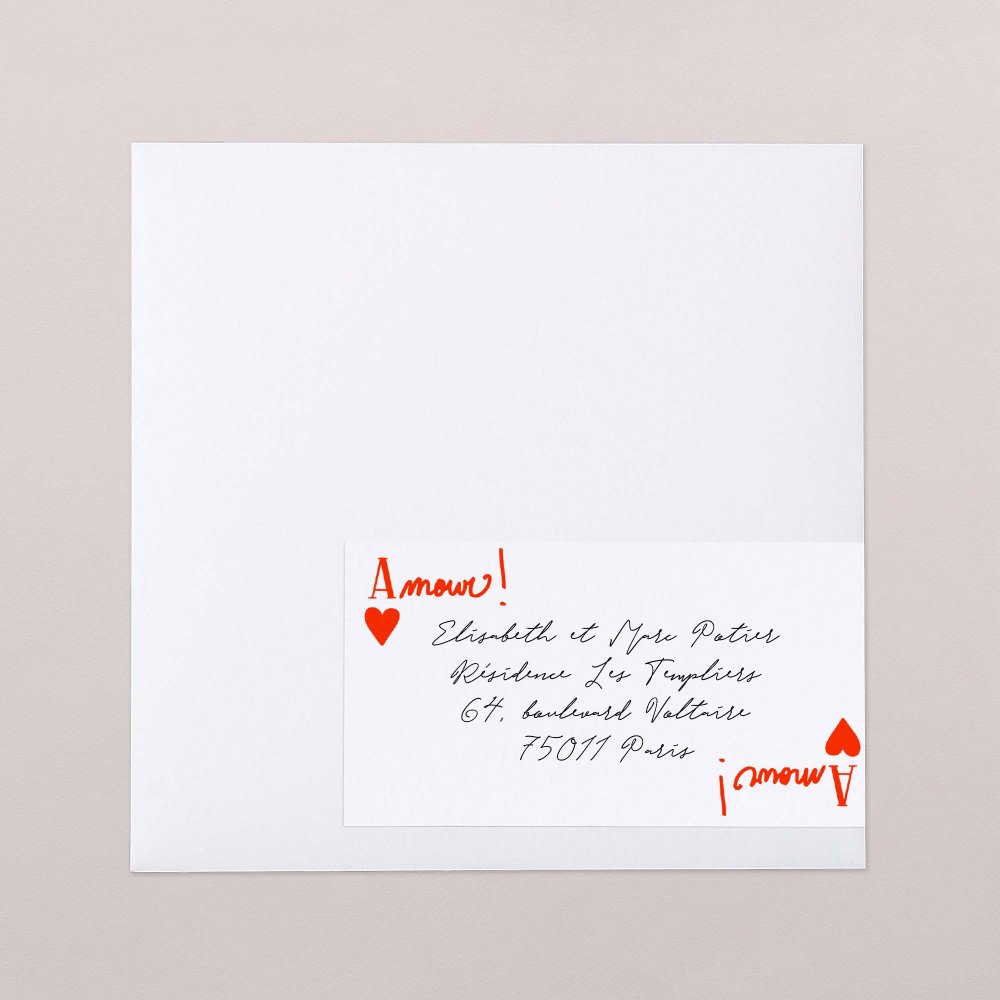 Amour !
Elisabeth et Marc Potier
Résidence Les Templiers
64, boulevard Voltaire
75011 Paris
Amour !